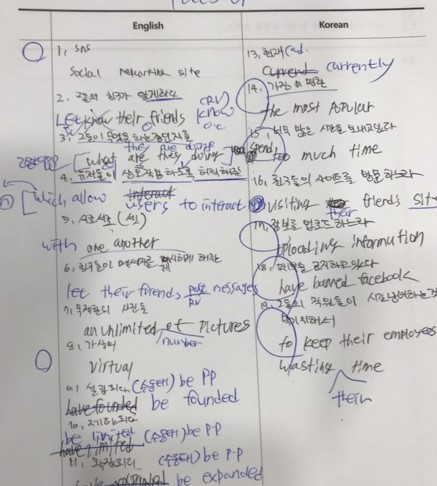 English
1, SNS
Social Networking site
2. 그들의 친구가 알게하라
Let know their friends
(RV)
know
o.c
3. 그들이 무엇을 하는중인지를
they are doing
what are they doing
4. 유저들이 상호작용 하도록 허락해준
which allow users to interact
interact
5, 서로서로 (셋)
with one another
6. 친구들이 메시지를 하게 해준
let their firends post messages
RV
7. 무제한의 사진들
an unlimited of pictures
number
8, 가상의
virtual
9, 설립되다 (수동태) be PP
have founded be founded
10, 제한되다
be limited (수동태) be P-P
have limited
11, 확장되다 (수동태) be p-p
be expanded
Korean
13, 현재 (ad.
Current currently
14, 가장 인기있는
the most popular
15, 너무 많은 시간을 보내고있다
spend too much time
16, 친구들의 사이트를 방문하는라
visiting friends site
their
17, 정보를 업로드 하느라
uploading information
18,
have banned facebook
19, 그들의 직원들이 시간낭비하는것
막기위해서
to keep their employees
wasting time
their